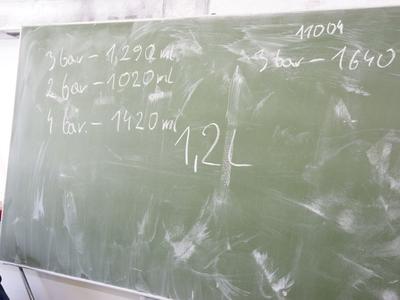 3 bar - 1,290 ml
2 bar - 1020 ml
4 bar. - 1420 ml
1,2L
11004
3 bar - 1640